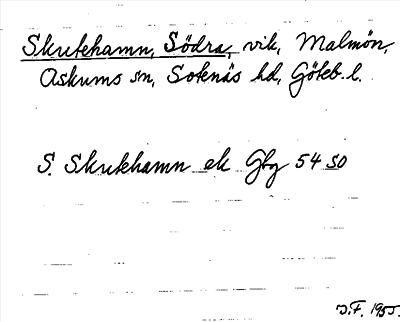 Skutehamn, Södra, vik, Malmön,
Askums sn, Sotenäs hd, Göteb. l.
S. Skutehamn ek Gbg 54 SO
J.F. 1955.